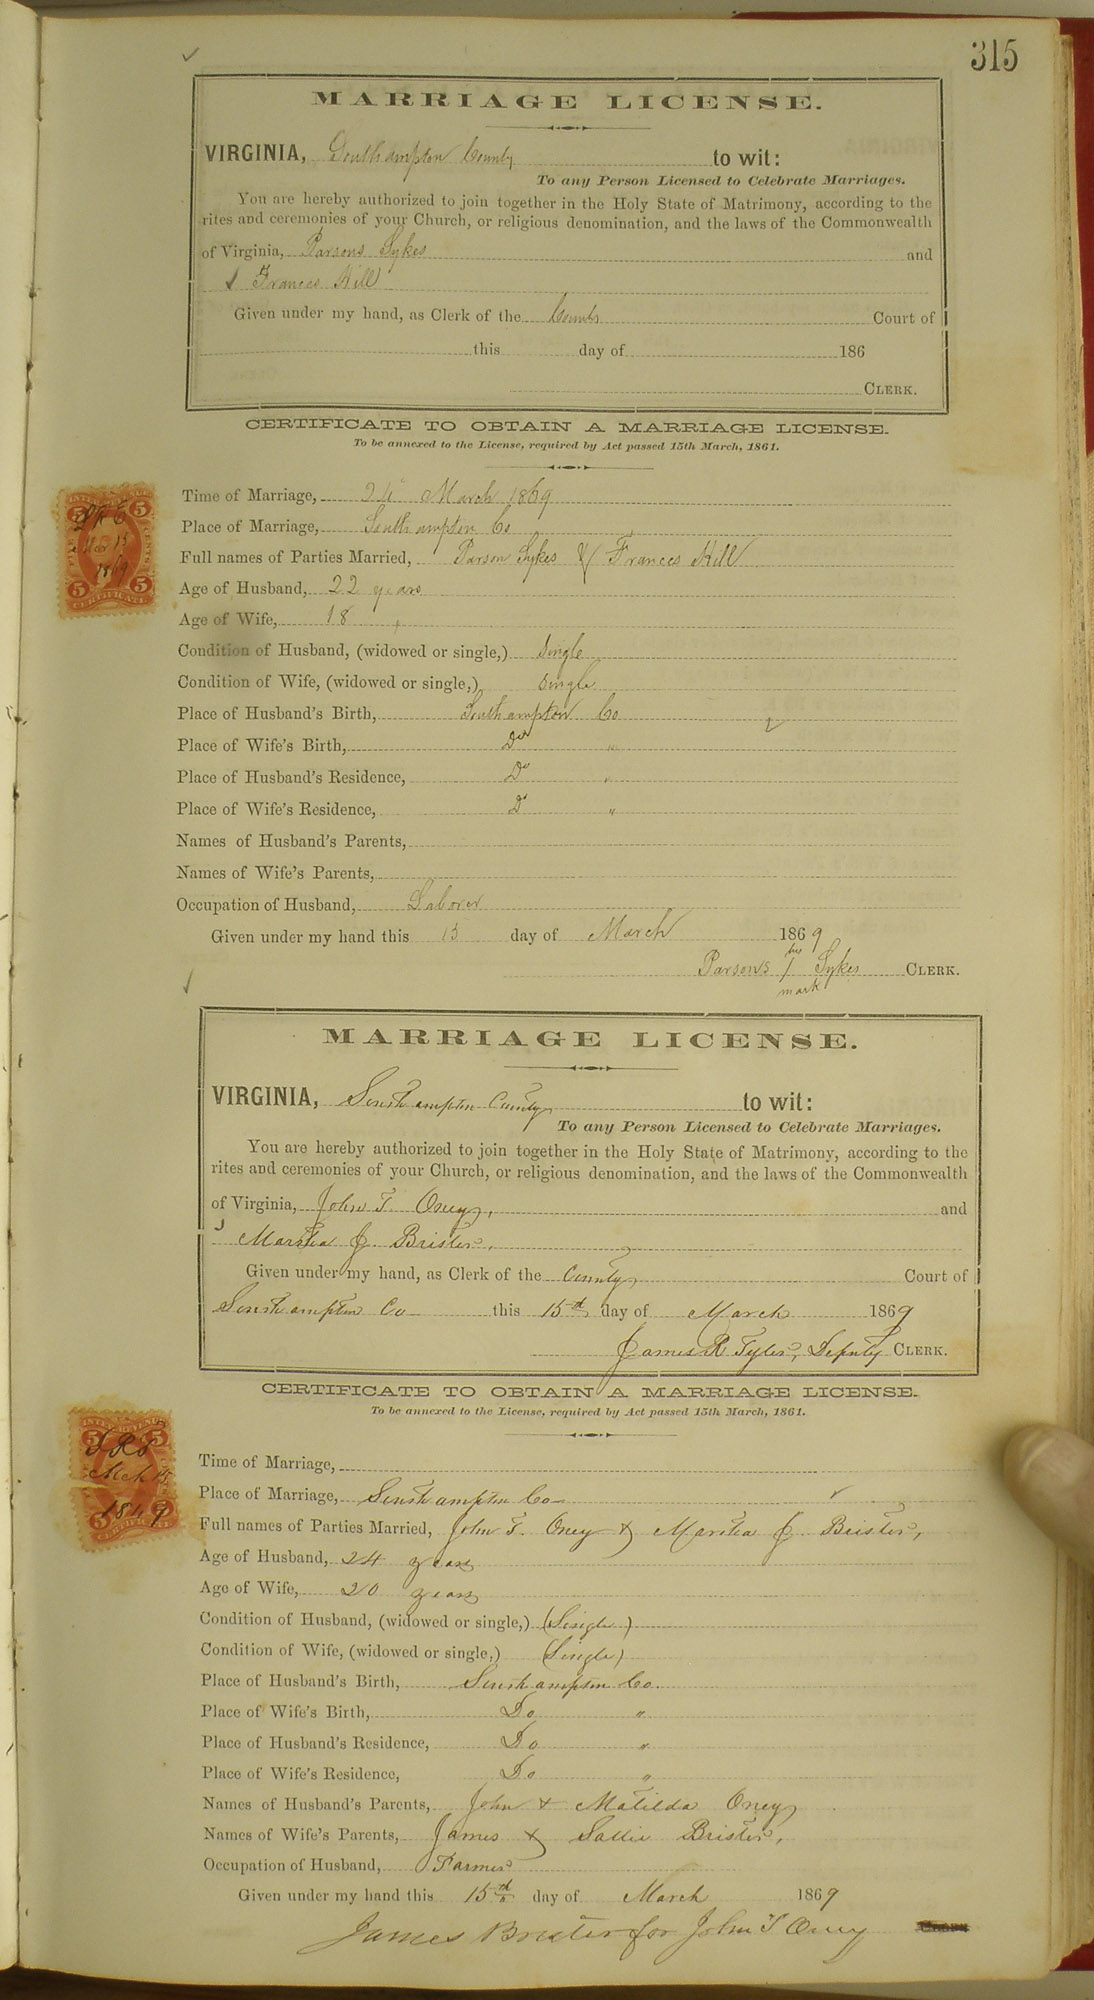 315
MARRIAGE LICENSE.
VIRGINIA, Southampton County to wit:
To any Person Licensed to Celebrate Marriages.
You are hereby authorized to join together in the Holy State of Matrimony, according to the
rites and ceremonies of your Church, or religious denomination, and the laws of the Commonwealth
of Virginia, Parsons Sykes and
Frances Hill
Given under my hand, as Clerk of the County Court of
this day of 186
CLERK.
CERTIFICATE TO OBTAIN A MARRIAGE LICENSE.
To be annexed to the License, required by Act passed 15th March, 1861.
Time of Marriage, March 1869
Place of Marriage, Southampton Co
Full names of Parties Married, Parson Sykes & Frances Hill
Age of Husband, 22 years
Age of Wife, 18 "
Condition of Husband, (widowed or single,) Single
Condition of Wife, (widowed or single,) Single
Place of Husband's Birth, Southampton Co
Place of Wife's Birth, Do "
Place of Husband's Residence, Do "
Place of Wife's Residence, Do "
Names of Husband's Parents,
Names of Wife's Parents,
Occupation of Husband, Laborer
Given under my hand this 15 day of March 1869
his
Parsons / Sykes CLERK.
mark
5 5
Mar 15
1869
5 5
CERTIFICATE
MARRIAGE LICENSE.
VIRGINIA, Southampton County to wit:
To any Person Licensed to Celebrate Marriages.
You are hereby authorized to join together in the Holy State of Matrimony, according to the
rites and ceremonies of your Church, or religious denomination, and the laws of the Commonwealth
of Virginia, John T. Oney, and
Martha J. Brister,
Given under my hand, as Clerk of the County Court of
Southampton Co this 15th day of March 1869
James R Tyler, Deputy CLERK.
CERTIFICATE TO OBTAIN A MARRIAGE LICENSE.
To be annexed to the License, required by Act passed 15th March, 1861.
Time of Marriage,
Place of Marriage, Southampton Co
Full names of Parties Married, John T. Oney & Martha J. Brister,
Age of Husband, 24 years
Age of Wife, 20 years
Condition of Husband, (widowed or single,) (Single)
Condition of Wife, (widowed or single,) (Single)
Place of Husband's Birth, Southampton Co.
Place of Wife's Birth, Do "
Place of Husband's Residence, Do "
Place of Wife's Residence, Do "
Names of Husband's Parents, John & Matilda Oney
Names of Wife's Parents, James & Sallie Brister,
Occupation of Husband, Farmer
Given under my hand this 15th day of March 1869
James Brister for John T Oney
5 5
Mch 15
1869
CERTIFICATE